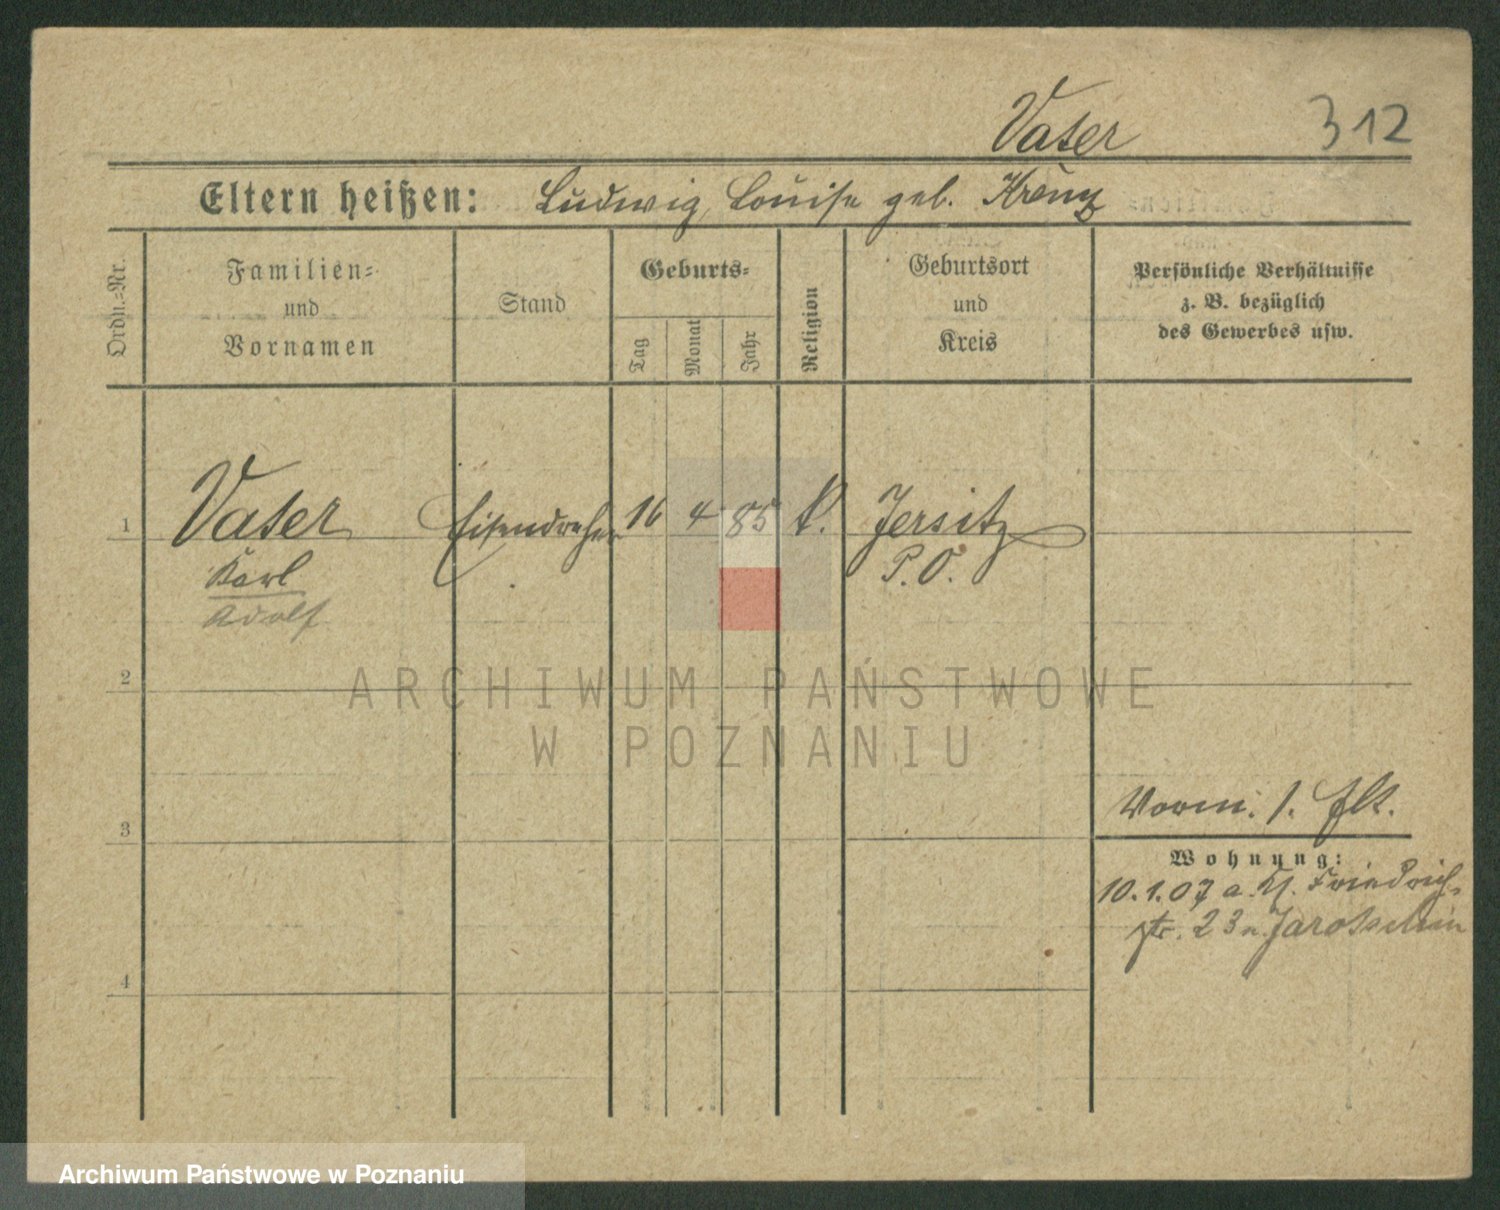 Vater 312
Eltern heißen: Ludwig, Louise geb.
Ordn.=Nr.
Familien=
und
Vornamen
Stand
Geburts=
Tag
Monat
Jahr
Religion
Geburtsort
und
Kreis
Persönliche Verhältnisse
z. B. bezüglich
des Gewerbes usw.
1 Vater Eisendreher 16 4 85 k. Jersitz
Karl P. O.
Adolf
2
ARCHIWUM PAŃSTWOWE
W POZNANIU
Vorm. 1. Flt.
3
Wohnung:
10.1.07 a. Kl. Friedrich-
str. 23 n. Jarotschin
4
Archiwum Państwowe w Poznaniu